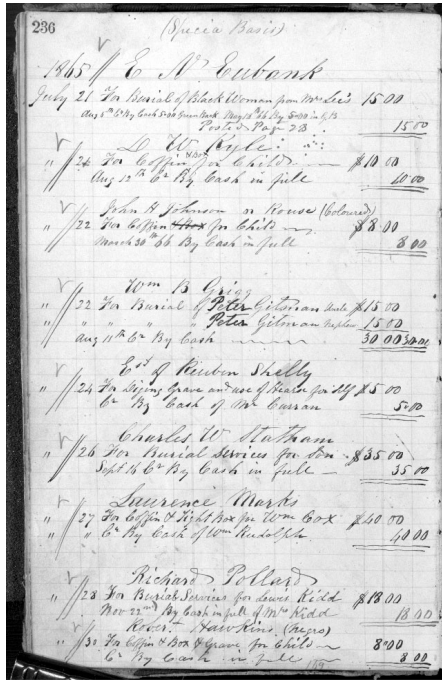 236
(Specia Basis)
1865 // E N Eubank
July 21 For Burial of Black Woman from Mrs Lee's 15 00
Aug 5th Cr By Cash 5.00 Green Back May 12th 66 By 5.00 in G B
Posted Page 23 15 00
D W Kyle
" // 21 For Coffin & Box for Child $10 00
Aug 12th Cr By Cash in full 10 00
John H Johnson or Rouse (Coloured)
" // 22 For Coffin & Box for Child $8 00
March 30th 66 By Cash in full 8 00
Wm B Grigg
" // 22 For Burial of Peter Gilman Uncle $15 00
" " " " Peter Gilman Nephew 15 00
Aug 11th Cr By Cash 30 00 30 00
Est of Reuben Shelly
" // 24 For Diging Grave and use of Hearse for self $5 00
Cr By Cash of Mr Curran 5 00
Charles W Statham
" // 26 For Burial Services for Son $35 00
Sept 16 Cr By Cash in full 35 00
Laurence Marks
" // 27 For Coffin & Tight Box for Wm Cox $40 00
" Cr By Cash of Wm Rudolph 40 00
Richard Pollard
" // 28 For Burial Services for Lewis Kidd $18 00
Nov 22nd By Cash in full of Mrs Kidd 18 00
Robert Hawkins (Negro)
" // 30 For Coffin & Box & Grave for Child 8 00
Cr By Cash in full 8 00